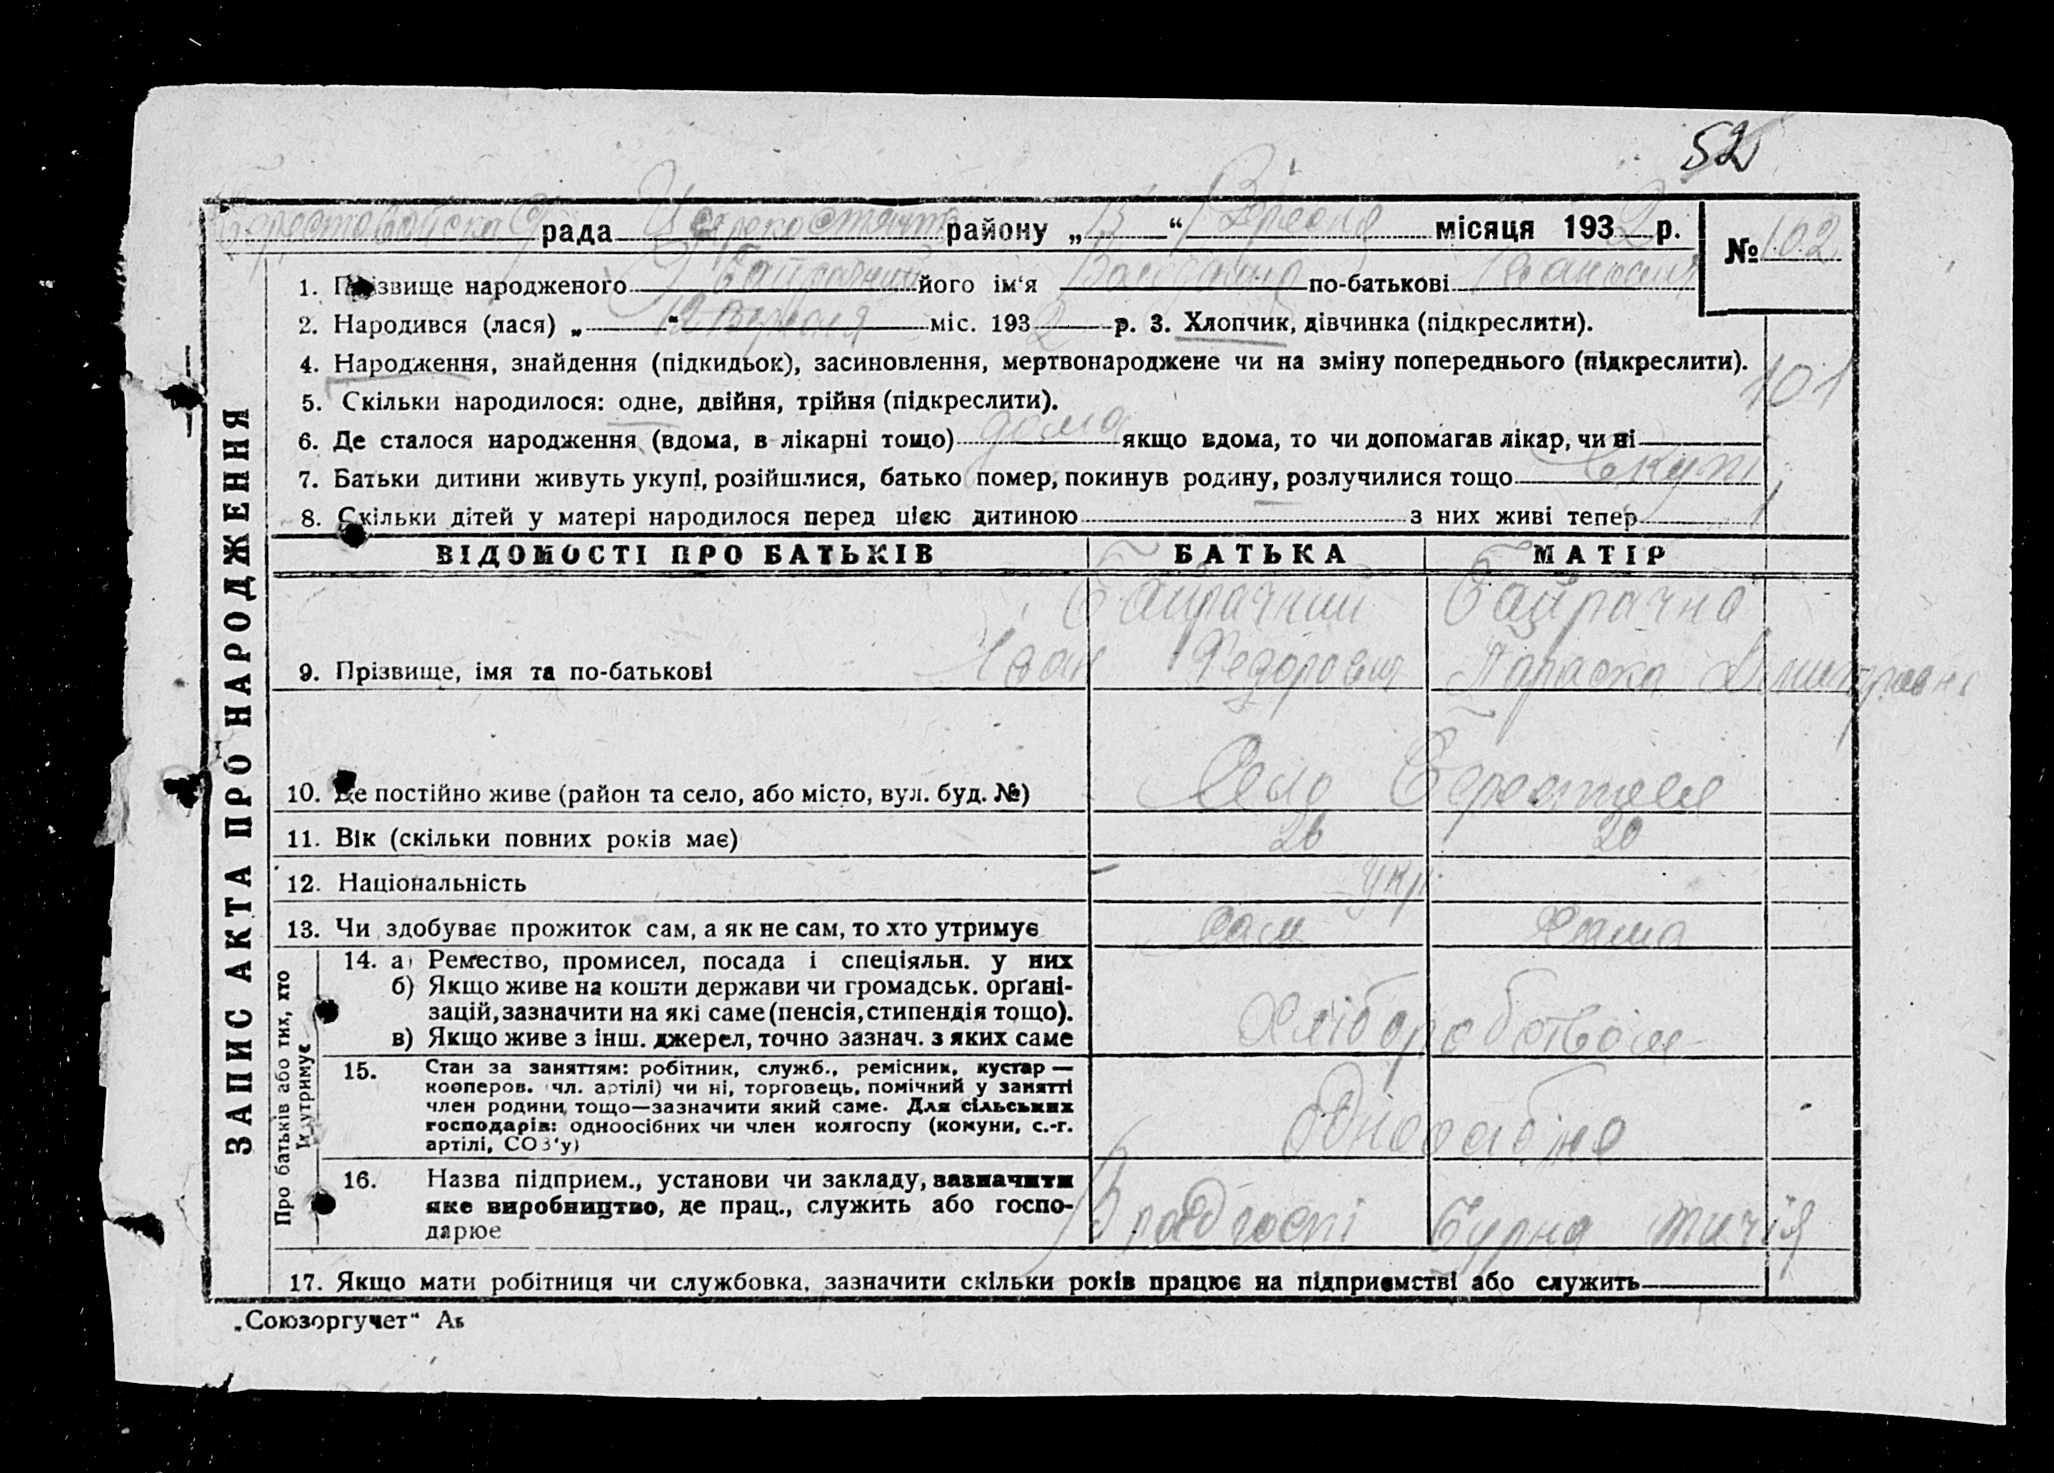 52
рада району „13“ Вересня місяця 1932 р. № 102
1. Прізвище народженого Байрачний його ім'я по-батькові
2. Народився (лася) „12“ Вересня міс. 1932 р. 3. Хлопчик, дівчинка (підкреслити).
4. Народження, знайдення (підкидьок), засиновлення, мертвонароджене чи на зміну попереднього (підкреслити).
101
5. Скільки народилося: одне, двійня, трійня (підкреслити).
6. Де сталося народження (вдома, в лікарні тощо) дома якщо вдома, то чи допомагав лікар, чи ні
7. Батьки дитини живуть укупі, розійшлися, батько помер, покинув родину, розлучилися тощо Вкупі
8. Скільки дітей у матері народилося перед цією дитиною з них живі тепер
ВІДОМОСТІ ПРО БАТЬКІВ БАТЬКА МАТІР
Байрачний Байрачна
9. Прізвище, імя та по-батькові Іван Федорович Параска
10. Де постійно живе (район та село, або місто, вул. буд. №) Село
11. Вік (скільки повних років має) 26 20
12. Національність укр
13. Чи здобуває прожиток сам, а як не сам, то хто утримує сам сама
14. а) Ремество, промисел, посада і спеціяльн. у них
б) Якщо живе на кошти держави чи громадськ. орґані-
зацій, зазначити на які саме (пенсія, стипендія тощо). Хліборобством
в) Якщо живе з інш. джерел, точно зазнач. з яких саме
15. Стан за заняттям: робітник, служб., ремісник, кустар —
кооперов. чл. артілі) чи ні, торговець, помічний у занятті
член родини, тощо—зазначити який саме. Для сільських
господарів: одноосібних чи член колгоспу (комуни, с.-г.
артілі, СОЗ'у)
16. Назва підприєм., установи чи закладу, зазначити
яке виробництво, де прац., служить або госпо-
дарює
17. Якщо мати робітниця чи службовка, зазначити скільки років працює на підприємстві або служить
ЗАПИС АКТА ПРО НАРОДЖЕННЯ
Про батьків або тих, хто
їх утримує
„Союзоргучет“